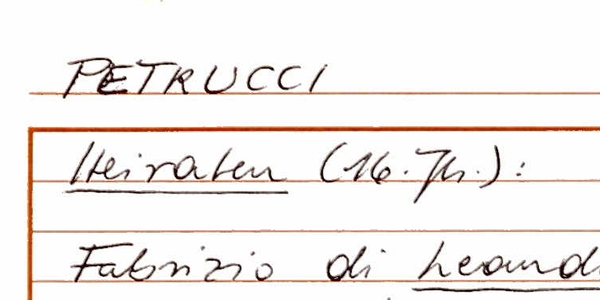 PETRUCCI
Heiraten (16. Jh.):
Fabrizio di